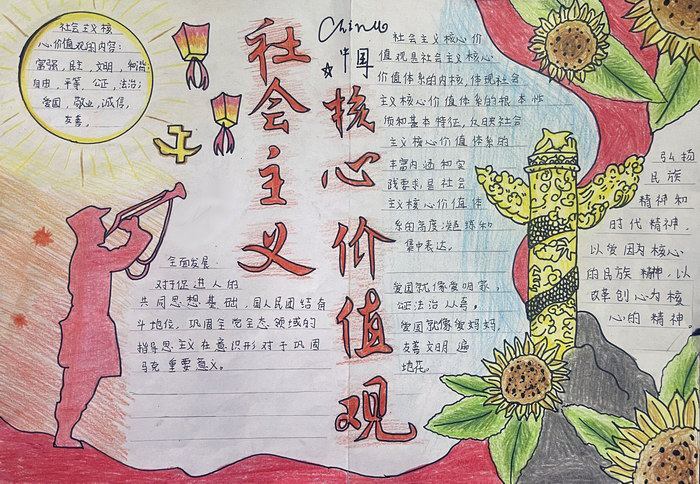 社会主义核
心价值观的内容：
富强，民主，文明，和谐
自由，平等，公正，法治；
爱国，敬业，诚信，
友善。
社会主义
China
中国
核心价值观
社会主义核心价
值观是社会主义核心
价值体系的内核，体现社会
主义核心价值体系的根本性
质和基本特征，反映社会
主义核心价值体系的
丰富内涵和实
践要求是社会
主义核心价值体
系的高度凝练和
集中表达。
爱国就像爱明家，
公正法治从喜。
爱国就像爱妈妈，
友善文明遍
地花。
全面发展.
对于促进人的
共同思想基础，国人民团结奋
斗地位，巩固全党全态领域的
指导思主义在意识形对于巩固
马克重要意义。
弘扬
民族
精神和
时代精神，
以爱国为核心
的民族精神，以
改革创心为核
心的精神